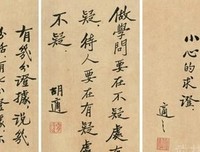 小心的求證.
適之
做學問要在不疑處有
疑.待人要在有疑處
不疑.
胡適
有幾分證據說幾